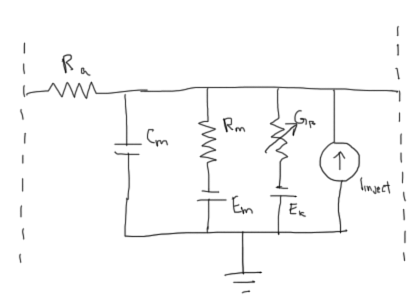 Ra
Cm
Rm
Em
Ek
Iinject